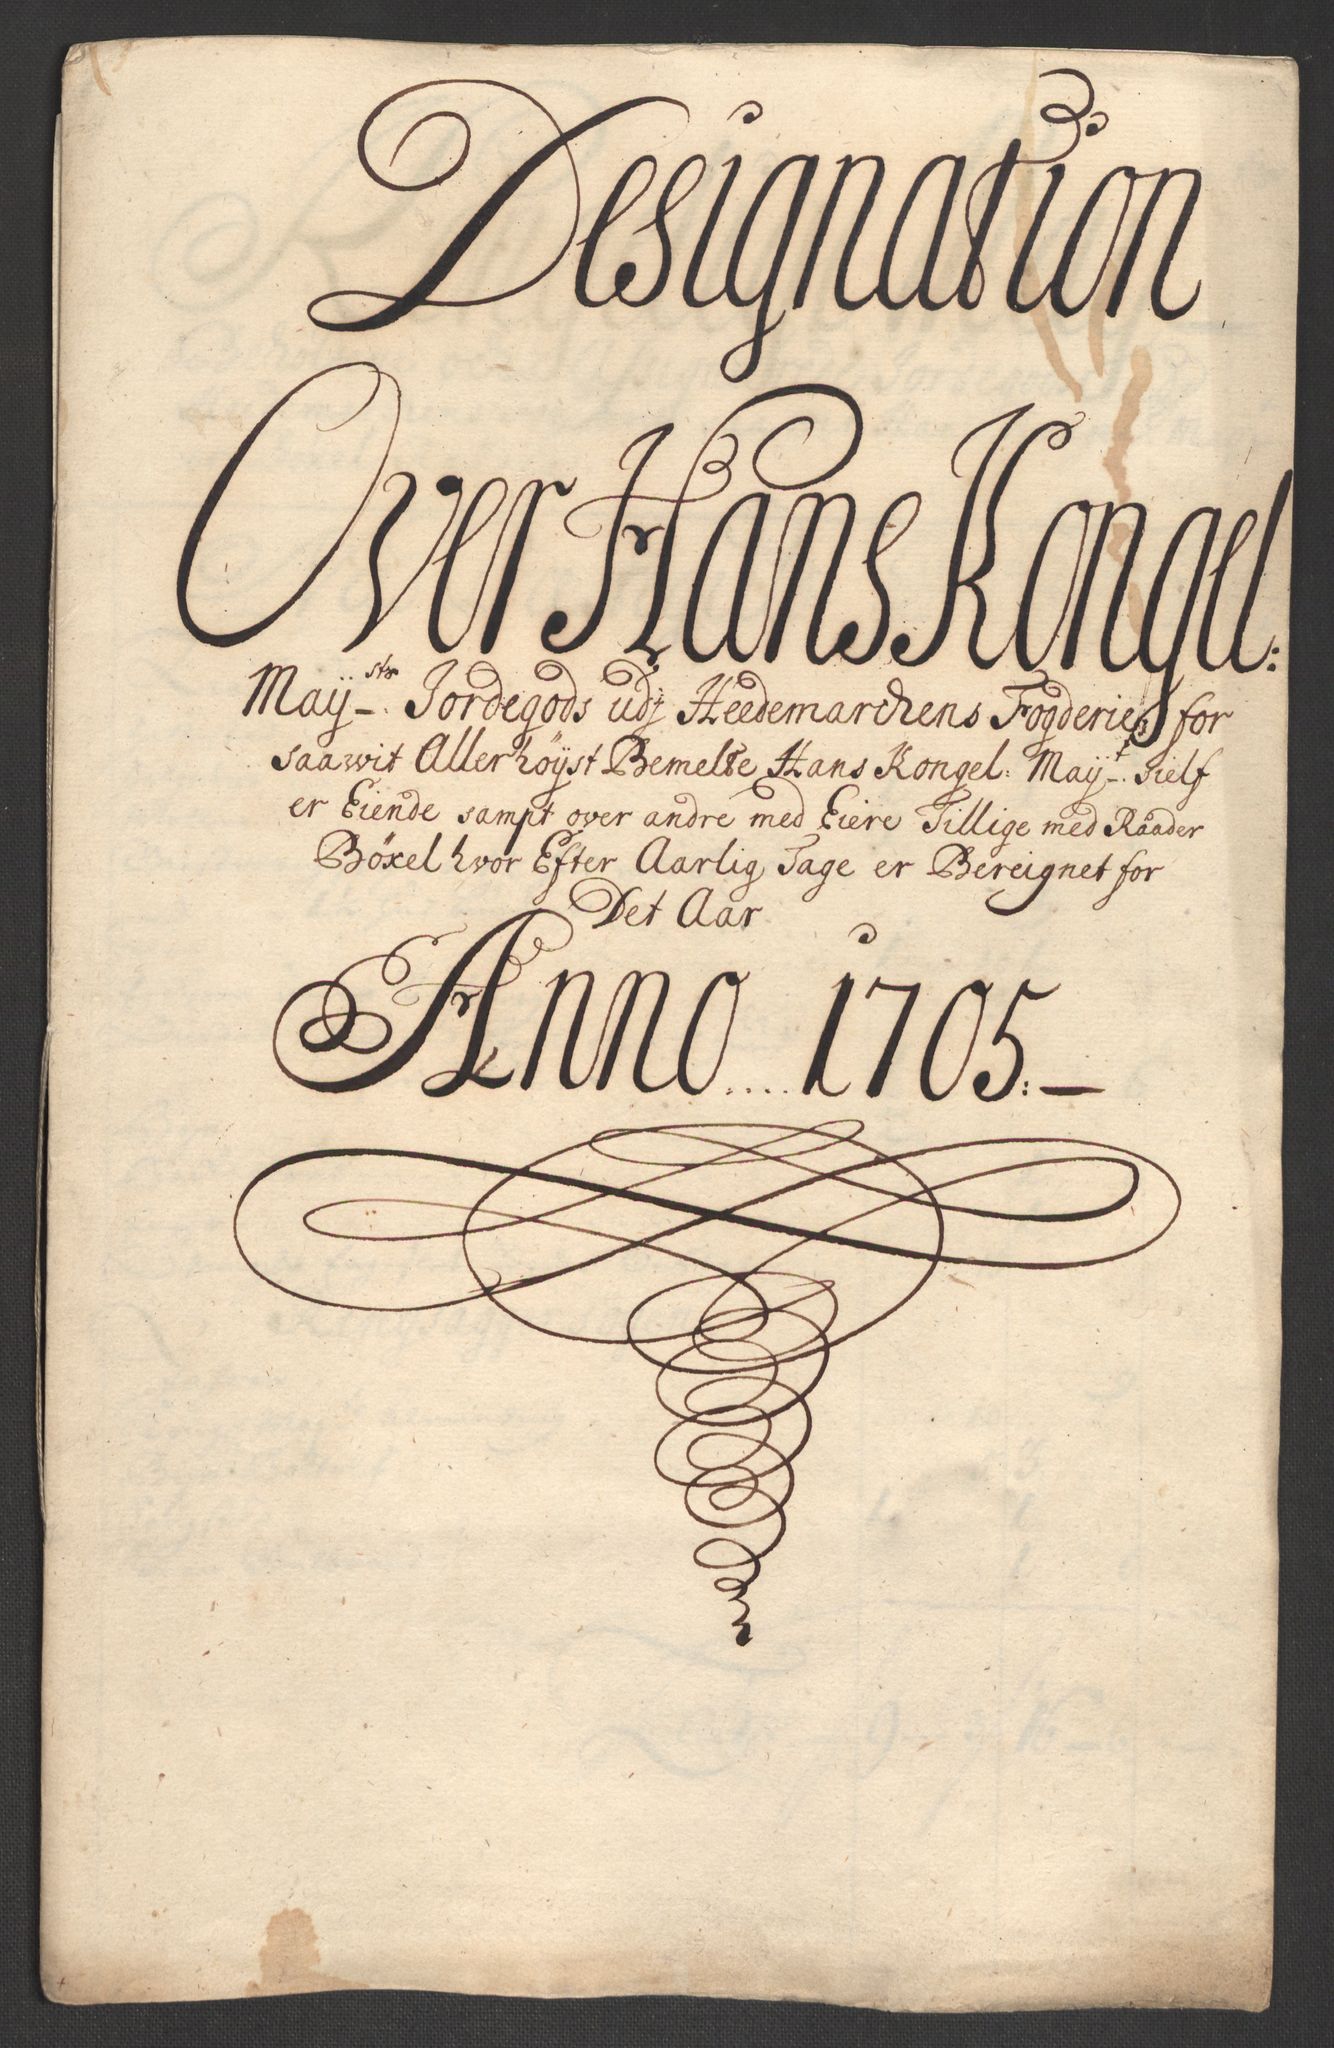 Designation
Over Hans Kongel:
Maÿsts Jordegods udj Heedemarchens Fogderie, for
saawit Allerhöÿst Bemelte Hans Kongel: Maÿt. Sielf
er Eiende sampt over andre med Eiere Tillige med Raader
Böxel hvor Efter Aarlig Tage er Bereignet for
Det Aar
Anno .... 1705:—